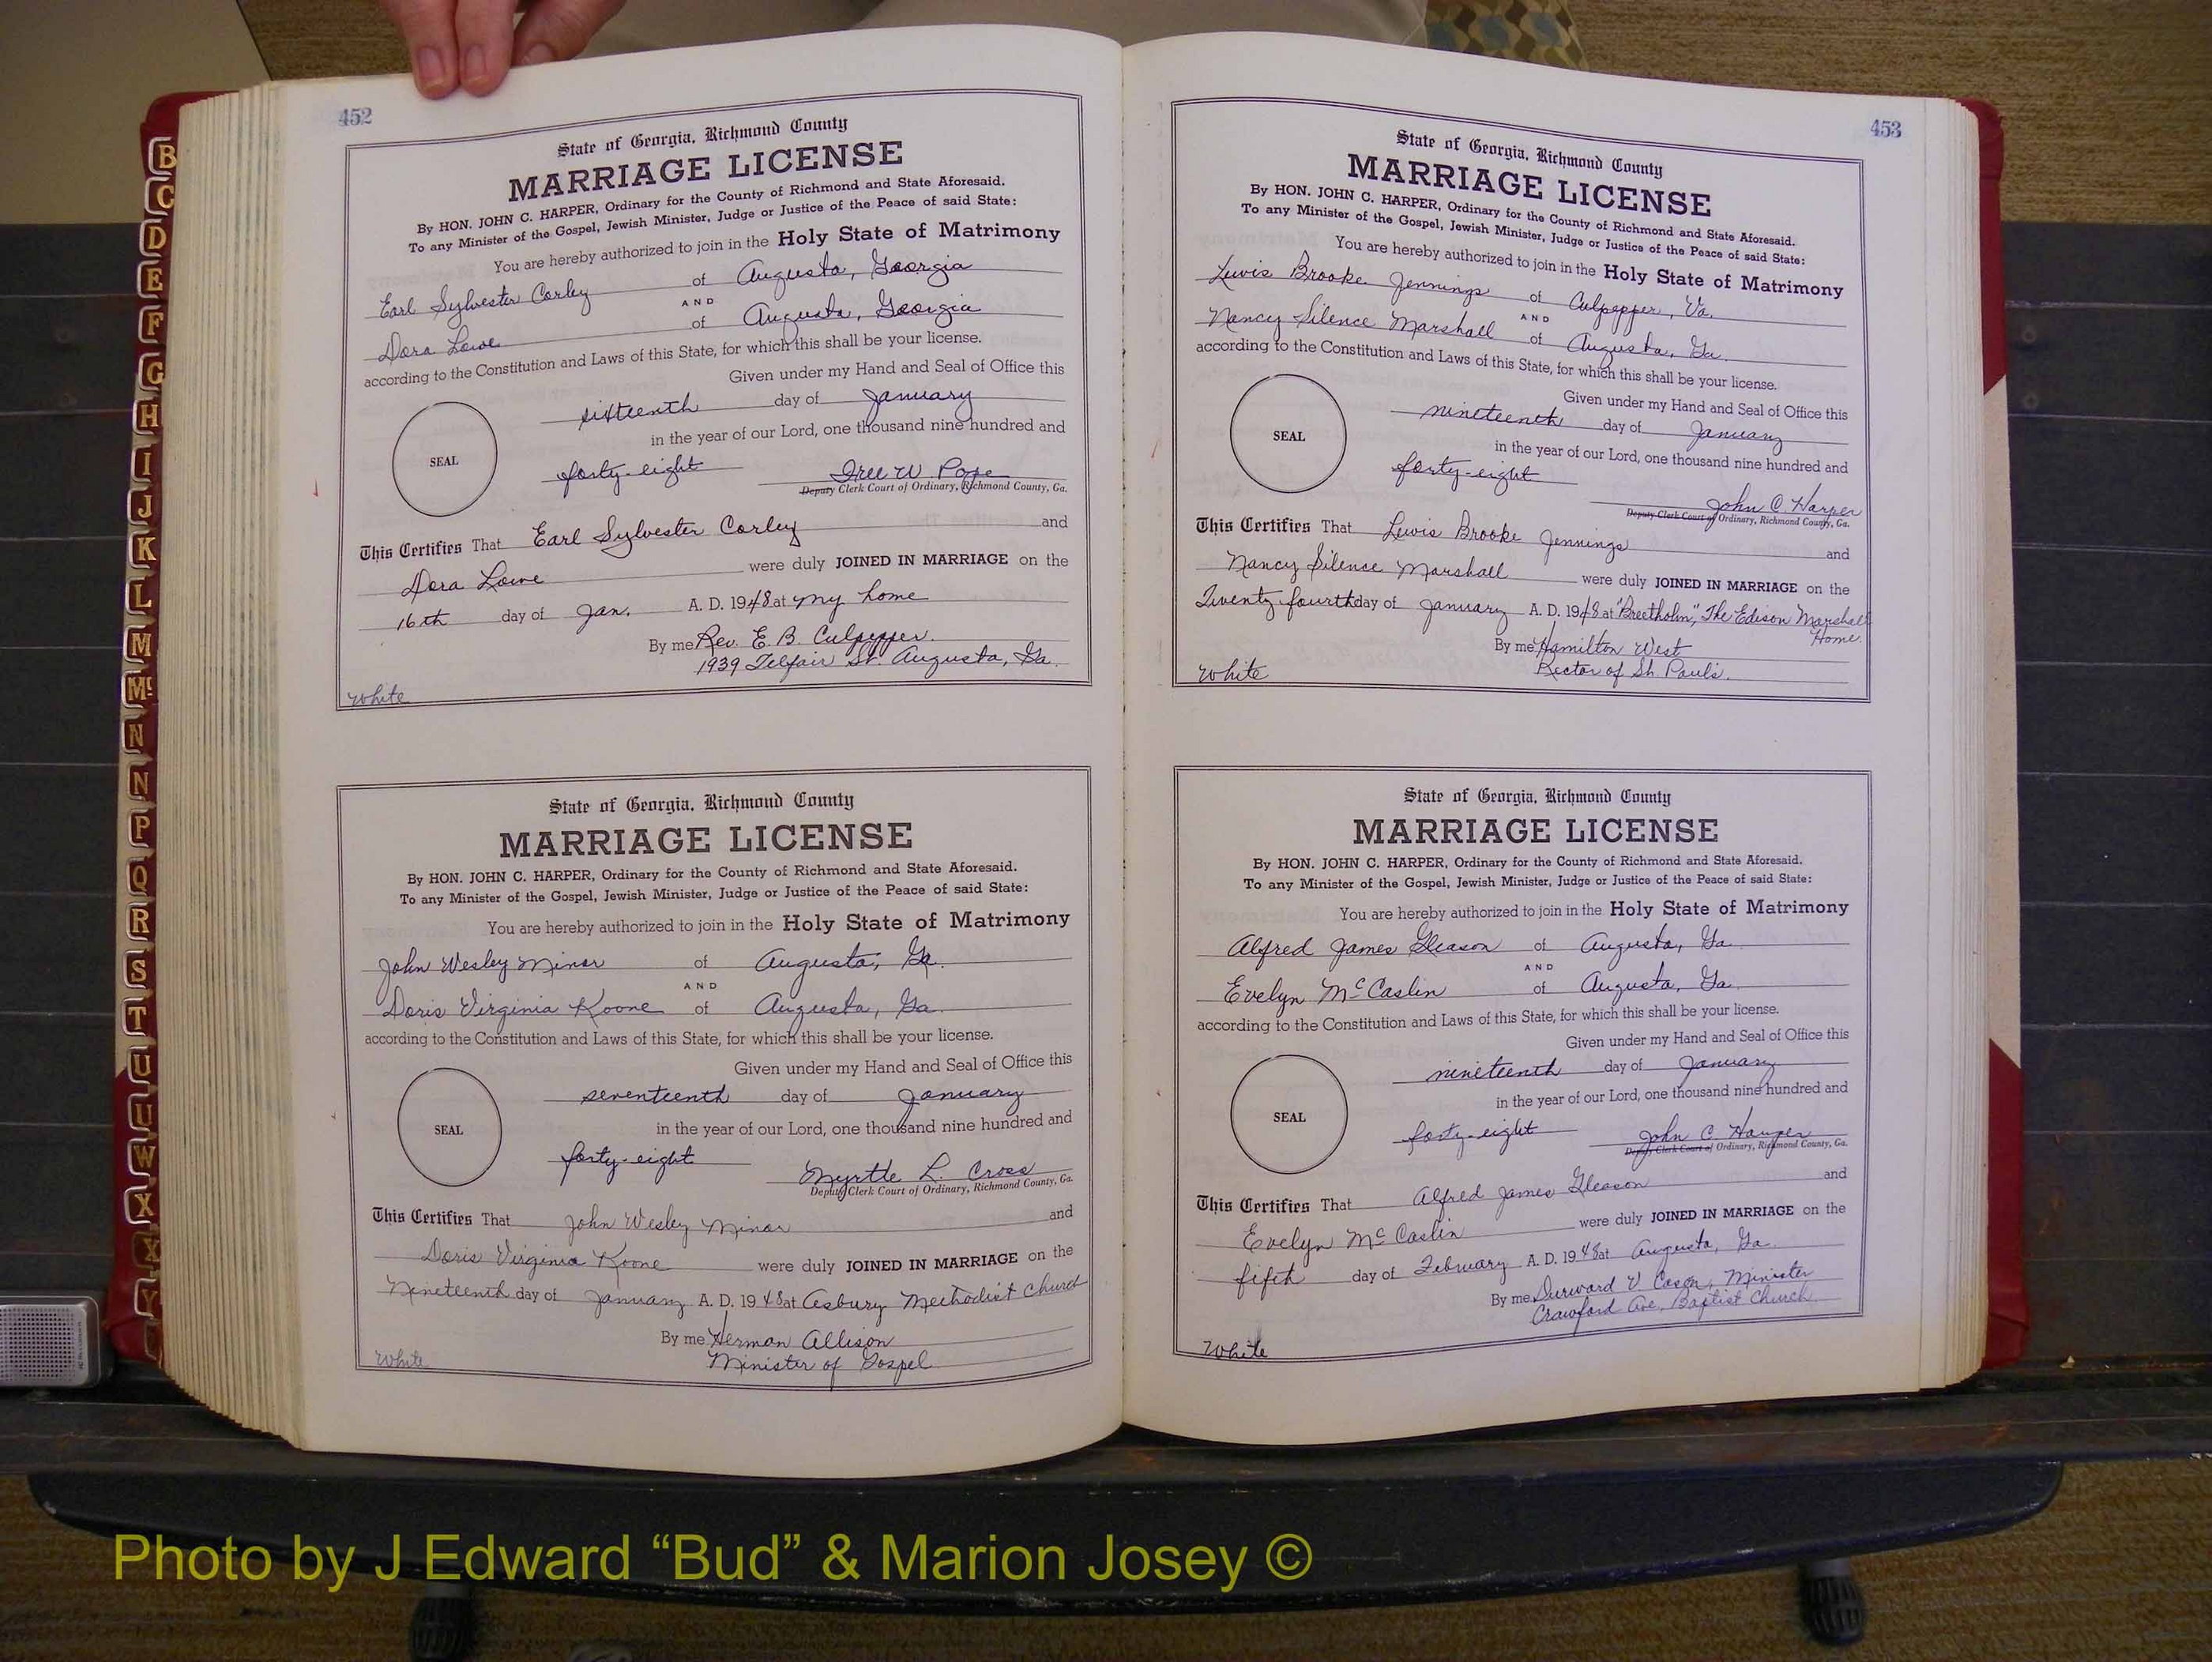 452
State of Georgia, Richmond County
MARRIAGE LICENSE
By HON. JOHN C. HARPER, Ordinary for the County of Richmond and State Aforesaid.
To any Minister of the Gospel, Jewish Minister, Judge or Justice of the Peace of said State:
You are hereby authorized to join in the Holy State of Matrimony
Earl Sylvester Corley of Augusta, Georgia
AND
Dora Lowe of Augusta, Georgia
according to the Constitution and Laws of this State, for which this shall be your license.
Given under my Hand and Seal of Office this
sixteenth day of January
in the year of our Lord, one thousand nine hundred and
SEAL
forty-eight W. Pope
Deputy Clerk Court of Ordinary, Richmond County, Ga.
This Certifies That Earl Sylvester Corley and
Dora Lowe were duly JOINED IN MARRIAGE on the
16th day of Jan. A. D. 1948 at my home
By me Rev. E. B. Culpepper.
1939 Telfair St. Augusta, Ga.
White
State of Georgia, Richmond County
MARRIAGE LICENSE
By HON. JOHN C. HARPER, Ordinary for the County of Richmond and State Aforesaid.
To any Minister of the Gospel, Jewish Minister, Judge or Justice of the Peace of said State:
You are hereby authorized to join in the Holy State of Matrimony
John Wesley Minor of Augusta, Ga.
AND
Doris Virginia Koone of Augusta, Ga.
according to the Constitution and Laws of this State, for which this shall be your license.
Given under my Hand and Seal of Office this
seventeenth day of January
in the year of our Lord, one thousand nine hundred and
SEAL
forty-eight Myrtle L. Cross
Deputy Clerk Court of Ordinary, Richmond County, Ga.
This Certifies That John Wesley Minor and
Doris Virginia Koone were duly JOINED IN MARRIAGE on the
Nineteenth day of January A. D. 1948 at Asbury Methodist Church
By me Herman Allison
Minister of Gospel
White
453
State of Georgia, Richmond County
MARRIAGE LICENSE
By HON. JOHN C. HARPER, Ordinary for the County of Richmond and State Aforesaid.
To any Minister of the Gospel, Jewish Minister, Judge or Justice of the Peace of said State:
You are hereby authorized to join in the Holy State of Matrimony
Lewis Brooke Jennings of Culpepper, Va.
AND
Nancy Silence Marshall of Augusta, Ga.
according to the Constitution and Laws of this State, for which this shall be your license.
Given under my Hand and Seal of Office this
nineteenth day of January
in the year of our Lord, one thousand nine hundred and
SEAL
forty-eight
John C. Harper
Deputy Clerk Court of Ordinary, Richmond County, Ga.
This Certifies That Lewis Brooke Jennings and
Nancy Silence Marshall were duly JOINED IN MARRIAGE on the
Twenty fourth day of January A. D. 1948 at "Breetholm," The Edison Marshall
Home.
By me Hamilton West
Rector of St. Paul's.
White
State of Georgia, Richmond County
MARRIAGE LICENSE
By HON. JOHN C. HARPER, Ordinary for the County of Richmond and State Aforesaid.
To any Minister of the Gospel, Jewish Minister, Judge or Justice of the Peace of said State:
You are hereby authorized to join in the Holy State of Matrimony
Alfred James Gleason of Augusta, Ga.
AND
Evelyn McCaslin of Augusta, Ga.
according to the Constitution and Laws of this State, for which this shall be your license.
Given under my Hand and Seal of Office this
nineteenth day of January
in the year of our Lord, one thousand nine hundred and
SEAL
forty-eight John C. Harper
Deputy Clerk Court of Ordinary, Richmond County, Ga.
This Certifies That Alfred James Gleason and
Evelyn McCaslin were duly JOINED IN MARRIAGE on the
fifth day of February A. D. 1948 at Augusta, Ga.
By me Durward V. Cason, Minister
Crawford Ave. Baptist Church
White
B
C
D
E
F
G
H
I
J
K
L
M
Mc
N
N
P
Q
R
S
T
U
U
W
X
X
Y
Photo by J Edward “Bud” & Marion Josey ©